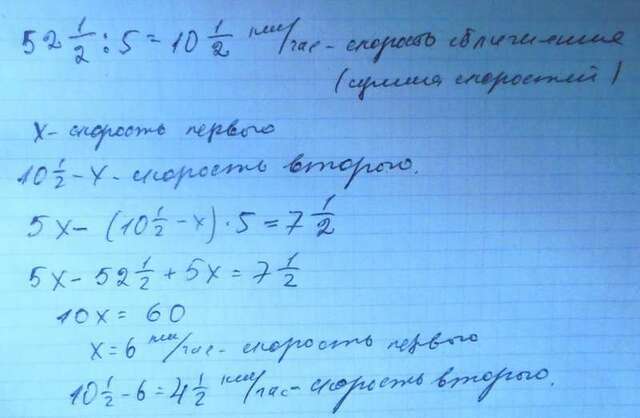 52 1/2 : 5 = 10 1/2 км/час - скорость сближения
(сумма скоростей)
x - скорость первого
10 1/2 - x - скорость второго.
5x - (10 1/2 - x) · 5 = 7 1/2
5x - 52 1/2 + 5x = 7 1/2
10x = 60
x = 6 км/час - скорость первого
10 1/2 - 6 = 4 1/2 км/час - скорость второго.